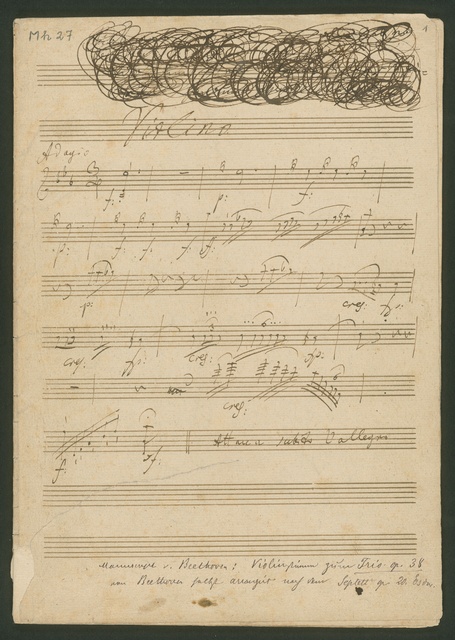 Mh 27
1
Violino
Adagio
f:
p:
f:
p:
f:
f:
ff:
p:
cresc:
fp:
cresc:
fp:
cresc:
fp:
cresc:
f:
sf:
Attacca subito l'allegro
Manuscript v. Beethoven: Violinstimme zum Trio op. 38
von Beethoven selbst arrangirt nach dem Septett op. 20. Es dur